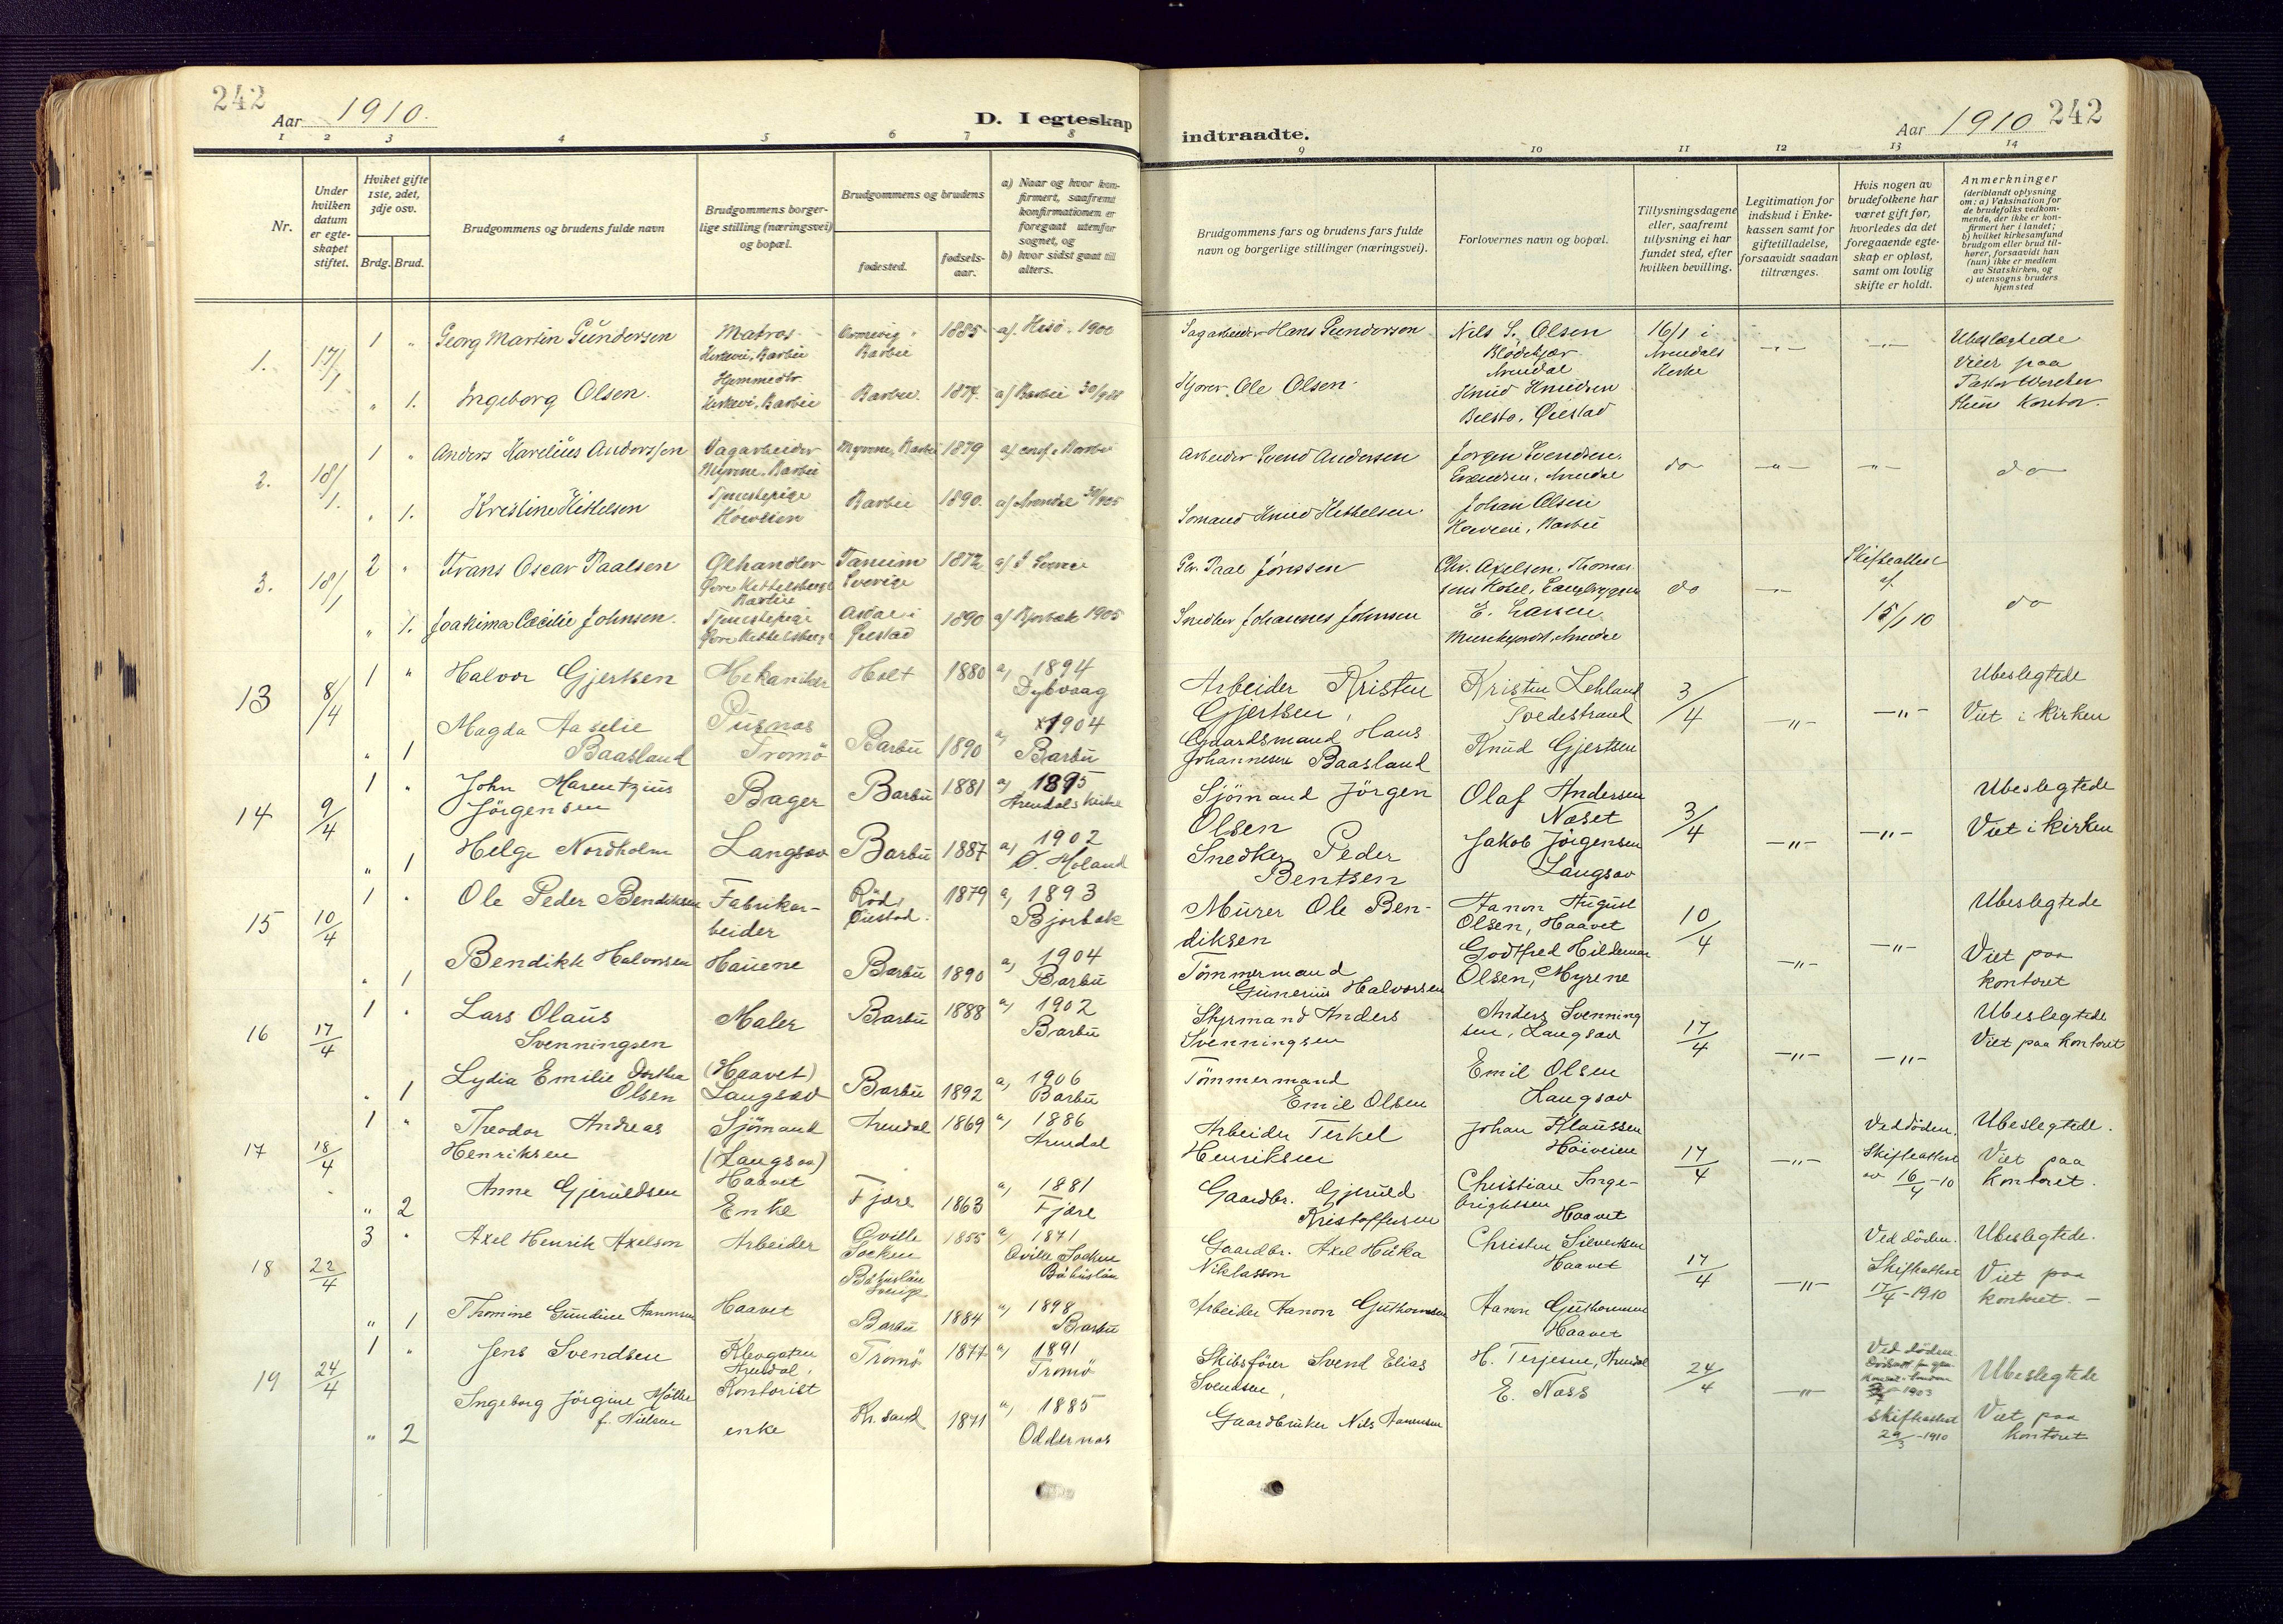 242
Aar 1910.
D. I egteskap
1
2
3
4
5
6
7
8
Nr.
Under hvilken datum er egteskapet stiftet.
Hviket gifte 1ste, 2det, 3dje osv.
Brdg.
Brud.
Brudgommens og brudens fulde navn
Brudgommens borgerlige stilling (næringsvei) og bopæl.
Brudgommens og brudens
fødested.
fødselsaar.
a) Naar og hvor konfirmert, saafremt konfirmationen er foregaat utenfor sognet, og
b) hvor sidst gaat til alters.
indtraadte.
Aar 1910
242
9
10
11
12
13
14
Brudgommens fars og brudens fars fulde navn og borgerlige stillinger (næringsvei).
Forlovernes navn og bopæl.
Tillysningsdagene eller, saafremt tillysning ei har fundet sted, efter hvilken bevilling.
Legitimation for indskud i Enkekassen samt for giftetilladelse, forsaavidt saadan tiltrænges.
Hvis nogen av brudefolkene har været gift før, hvorledes da det foregaaende egteskap er opløst, samt om lovlig skifte er holdt.
Anmerkninger
(deriblandt oplysning om: a) Vaksination for de brudefolks vedkommende, der ikke er konfirmert her i landet; b) hvilket kirkesamfund brudgom eller brud tilhører, forsaavidt han (hun) ikke er medlem av Statskirken, og c) utensogns bruders hjemsted
1. 17/1 1 " Georg Martin Gundersen Matros Kirkevei, Barbu Barbu 1885 a/ Hisö 1900
" 1. Ingeborg Olsen. Kirkevei, Barbu Barbu 1874. a/ Barbu
Sagarbeider Hans Gundersen Nils S. Olsen Blödekjær Arendal 16/1 i Arendals Kirke —"— —"— Ubeslegtede Viet paa
Ole Olsen. Knud Knudsen Öiestad Kontor.
2. 18/1. 1 " Anders Karelius Anderssen Dagarbeider Myrene, Barbu Myrene, Barbu 1879 a/ Barbu
" 1. Kristine Kittelsen Tjenestepige Barbu 1890. a/ Arendal
Arbeider Svend Andersen Jörgen Svendsen, Arendal do —"— —"— do
Sömand Knud Kittelsen. Johan Olsen Barbu
3. 18/1 2 " Frans Oscar Paalsen Ølhandler Øvre Kittelsbergt Barbu Tanum Sverige 1872 a/ i Sverige
" 1. Joakima Cæcilie Johnsen. Tjenestepige Øvre Kittelsbergt Øiestad 1890 a/ Bjorbæk 1905
Paal Jönssen Chr. Axelsen. do —"— Skifteattest af 15/1 10 do
Snedker Johannes Johnsen E. Larsen Arendal
13 8/4 1 " Halvor Gjertsen Mekaniker Holt 1880 a, 1894 Dybvaag
" 1 Magda Aaselie Baasland Pusnes Tromö Barbu 1890 a, 1904 Barbu
Arbeider Kristen Gjertsen, Kristen Lehland Tvedestrand 3/4 —"— —"— Ubeslegtede
Gaardsmand Hans Johannesen Baasland Knud Gjertsen Viet i kirken
14 9/4 1 " John Marentzius Jörgensen Bager Barbu 1881 a, 1895 Arendals kirke
" 1 Helge Nordholm Langsæv Barbu 1887 a, 1902 Ø. Moland
Sjömand Jörgen Olsen Olaf Andersen Næset 3/4 —"— —"— Ubeslegtede
Snedker Peder Bentsen Jakob Jörgensen Langsæv Viet i kirken
15 10/4 1 " Ole Peder Bendiksen Fabrikarbeider Röd, Øiestad. 1879 a, 1893 Bjorbæk
" 1 Bendikte Halvorsen Hauene Barbu 1890 a, 1904 Barbu
Murer Ole Bendiksen Aanon August Olsen, Haavet 10/4 —"— —"— Ubeslegtede
Tömmermand Gunerius Halvorsen Godtfred Hildemar Olsen, Myrene Viet paa kontoret
16 17/4 1 " Lars Olaus Svenningsen Maler Barbu 1888 a, 1902 Barbu
" 1 Lydia Emilie Dorthea Olsen (Haavet) Langsæv Barbu 1892 a, 1906 Barbu
Styrmand Anders Svenningsen Anders Svenningsen, Langsæv 17/4 —"— —"— Ubeslegtede
Tömmermand Emil Olsen Emil Olsen Langsæv Viet paa kontoret
17 18/4 1 " Theodor Andreas Henriksen Sjömand (Langsæv) Haavet Arendal 1869 a, 1886 Arendal
" 2 Anne Gjeruldsen Enke Fjære 1863 a, 1881 Fjære
Arbeider Terkel Henriksen Johan Klaussen Höiveien 17/4 —"— Ved döden. Skifteattest av 16/4-10 Ubeslegtede.
Gaardbr. Gjeruld Kristoffersen Christian Ingebrigtsen Haavet Viet paa kontoret.
18 22/4 3 " Axel Henrik Axelson Arbeider Qville Socken Båhuslän Sverige 1855 a, 1871 Qville Socken Båhuslän
" 1 Thomine Gundine Aanonsen Haavet Barbu 1884 a, 1898 Barbu
Gaardbr. Axel Niklasson Christen Silvertsen Haavet 17/4 —"— Ved döden. Skifteattest 17/4-1910 Ubeslegtede.
Arbeider Aanon Guthormsen Aanon Guthormsen Haavet Viet paa kontoret. —
19 24/4 1 " Jens Svendsen Klevgaten Arendal, Kontorist Tromö 1877 a, 1891 Tromö
" 2 Ingeborg Jörgine Möller f. Nielsen enke Kr.sand 1871 a, 1885 Oddernes
Skibsförer Svend Elias Svendsen, H. Terjesen, Arendal 24/4 —"— Ved döden 1903 Ubeslegtede
Gaardbruker Nils Aanensen E. Næss skifteattest 29/3-1910 Viet paa kontoret